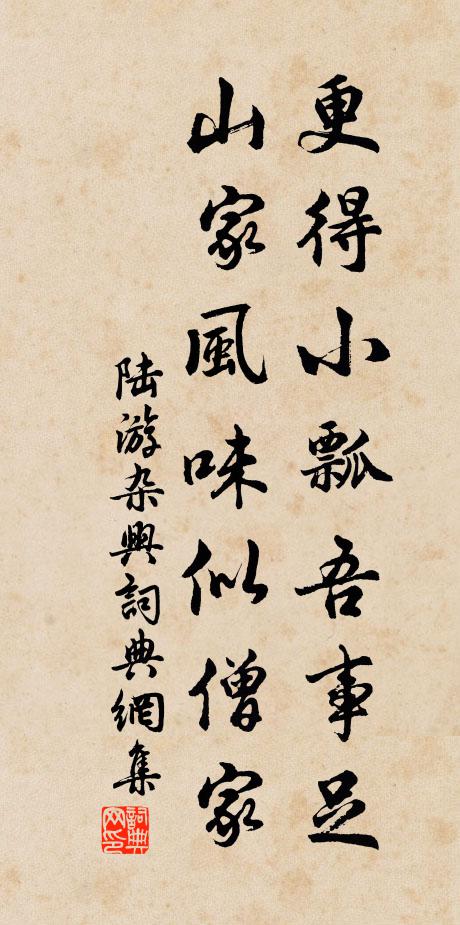 更得小瓢吾事足
山家風味似僧家
陆游杂興詞典網集
詞典網印